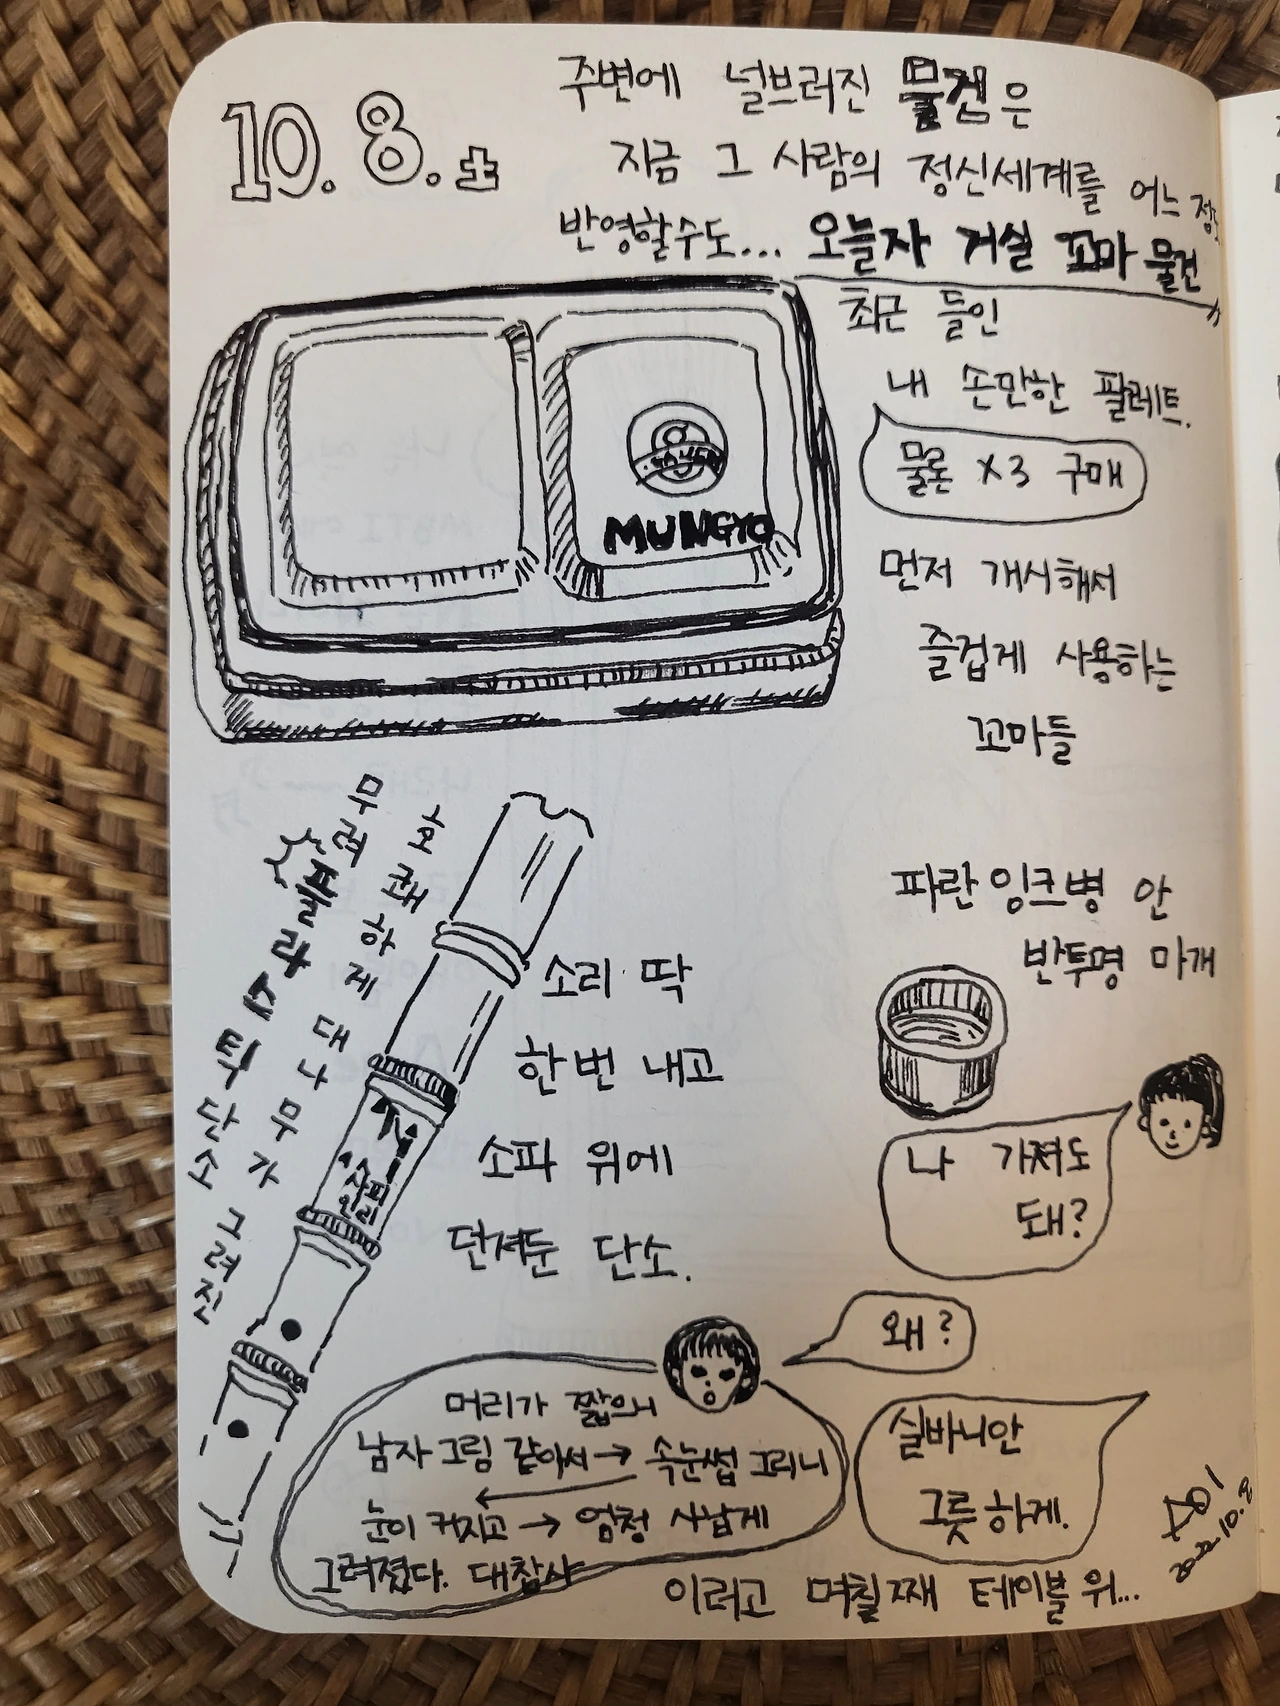 10. 8. 土
주변에 널브러진 물건은
지금 그 사람의 정신세계를 어느 정도
반영할수도... 오늘자 거실 꼬마 물건
최근 들인
내 손만한 팔레트.
물론 x3 구매
MUNGYO
먼저 개시해서
즐겁게 사용하는
꼬마들
무려 플라스틱 단소
호쾌하게 대나무가 그려진
소리 딱
한번 내고
소파 위에
던져둔 단소.
파란 잉크병 안
반투명 마개
나 가져도
돼?
왜?
실바니안
그릇 하게.
머리가 짧으니
남자 그림 같아서 → 속눈썹 그리니
눈이 커지고 → 엄청 사납게
그려졌다. 대참사
이러고 며칠째 테이블 위...
2022.10.8